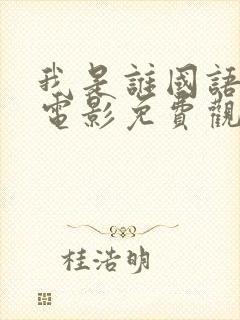 我是誰國語
電影免費觀
桂浩明